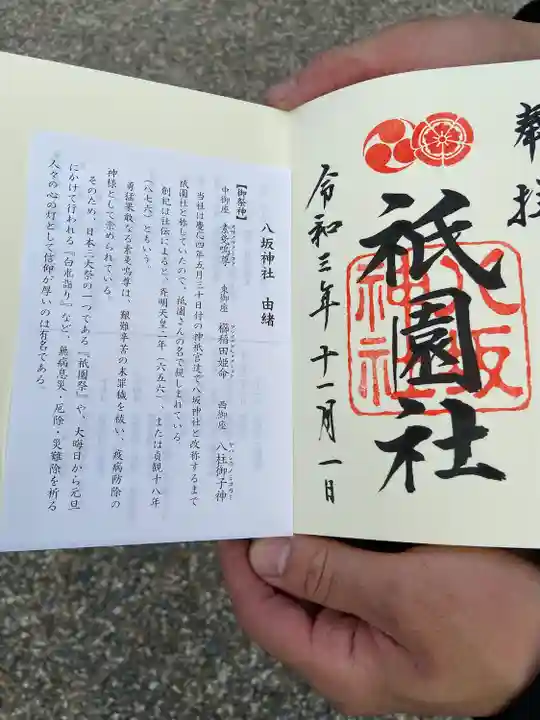 奉拝
八坂
神社
祇園社
令和三年十一月一日
八坂神社 由緒
【御祭神】
中御座 素戔嗚尊 東御座 櫛稲田姫命 西御座 八柱御子神
当社は慶応四年五月三十日付の神祇官達で八坂神社と改称するまで
祇園社と称していたので、祇園さんの名で親しまれている。
創紀は社伝によると、斉明天皇二年(六五六)、または貞観十八年
(八七六)ともいう。
勇猛果敢なる素戔嗚尊は、艱難辛苦の末罪穢を祓い、疫病防除の
神様として崇められている。
そのため、日本三大祭の一つである『祇園祭』や、大晦日から元旦
にかけて行われる『白朮詣り』など、無病息災・厄除・災難除を祈る
人々の心の灯として信仰が厚いのは有名である。